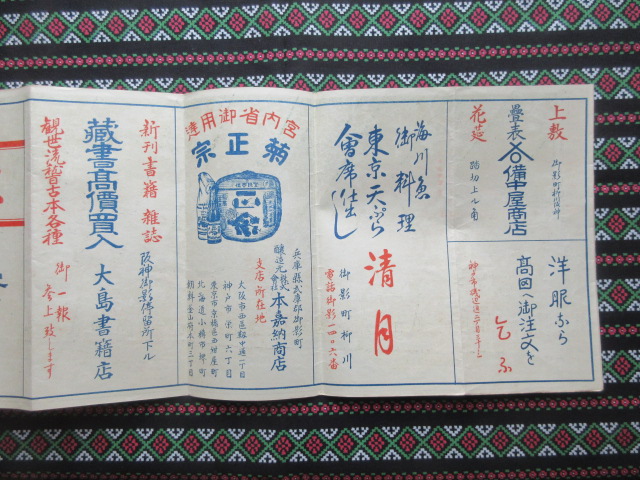 上敷
御影町
疊表 備中屋商店
花莚
踏切上ル角
洋服なら
髙田へ御注文を
乞ふ
海川魚
御料理
東京天ぷら
會席仕出し
清月
御影町柳川
電話御影一四〇六番
宮内省御用達
菊正宗
兵庫縣武庫郡御影町
醸造元 株式會社 本嘉納商店
支店所在地
大阪市西區靱中通一丁目
神戸市榮町六丁目
東京市京橋區西紺屋町
北海道小樽市堺町
朝鮮釜山府本町三丁目
新刊書籍 雜誌
阪神御影停留所下ル
藏書髙價買入
大島書籍店
観世流稽古本各種
御一報
参上致します